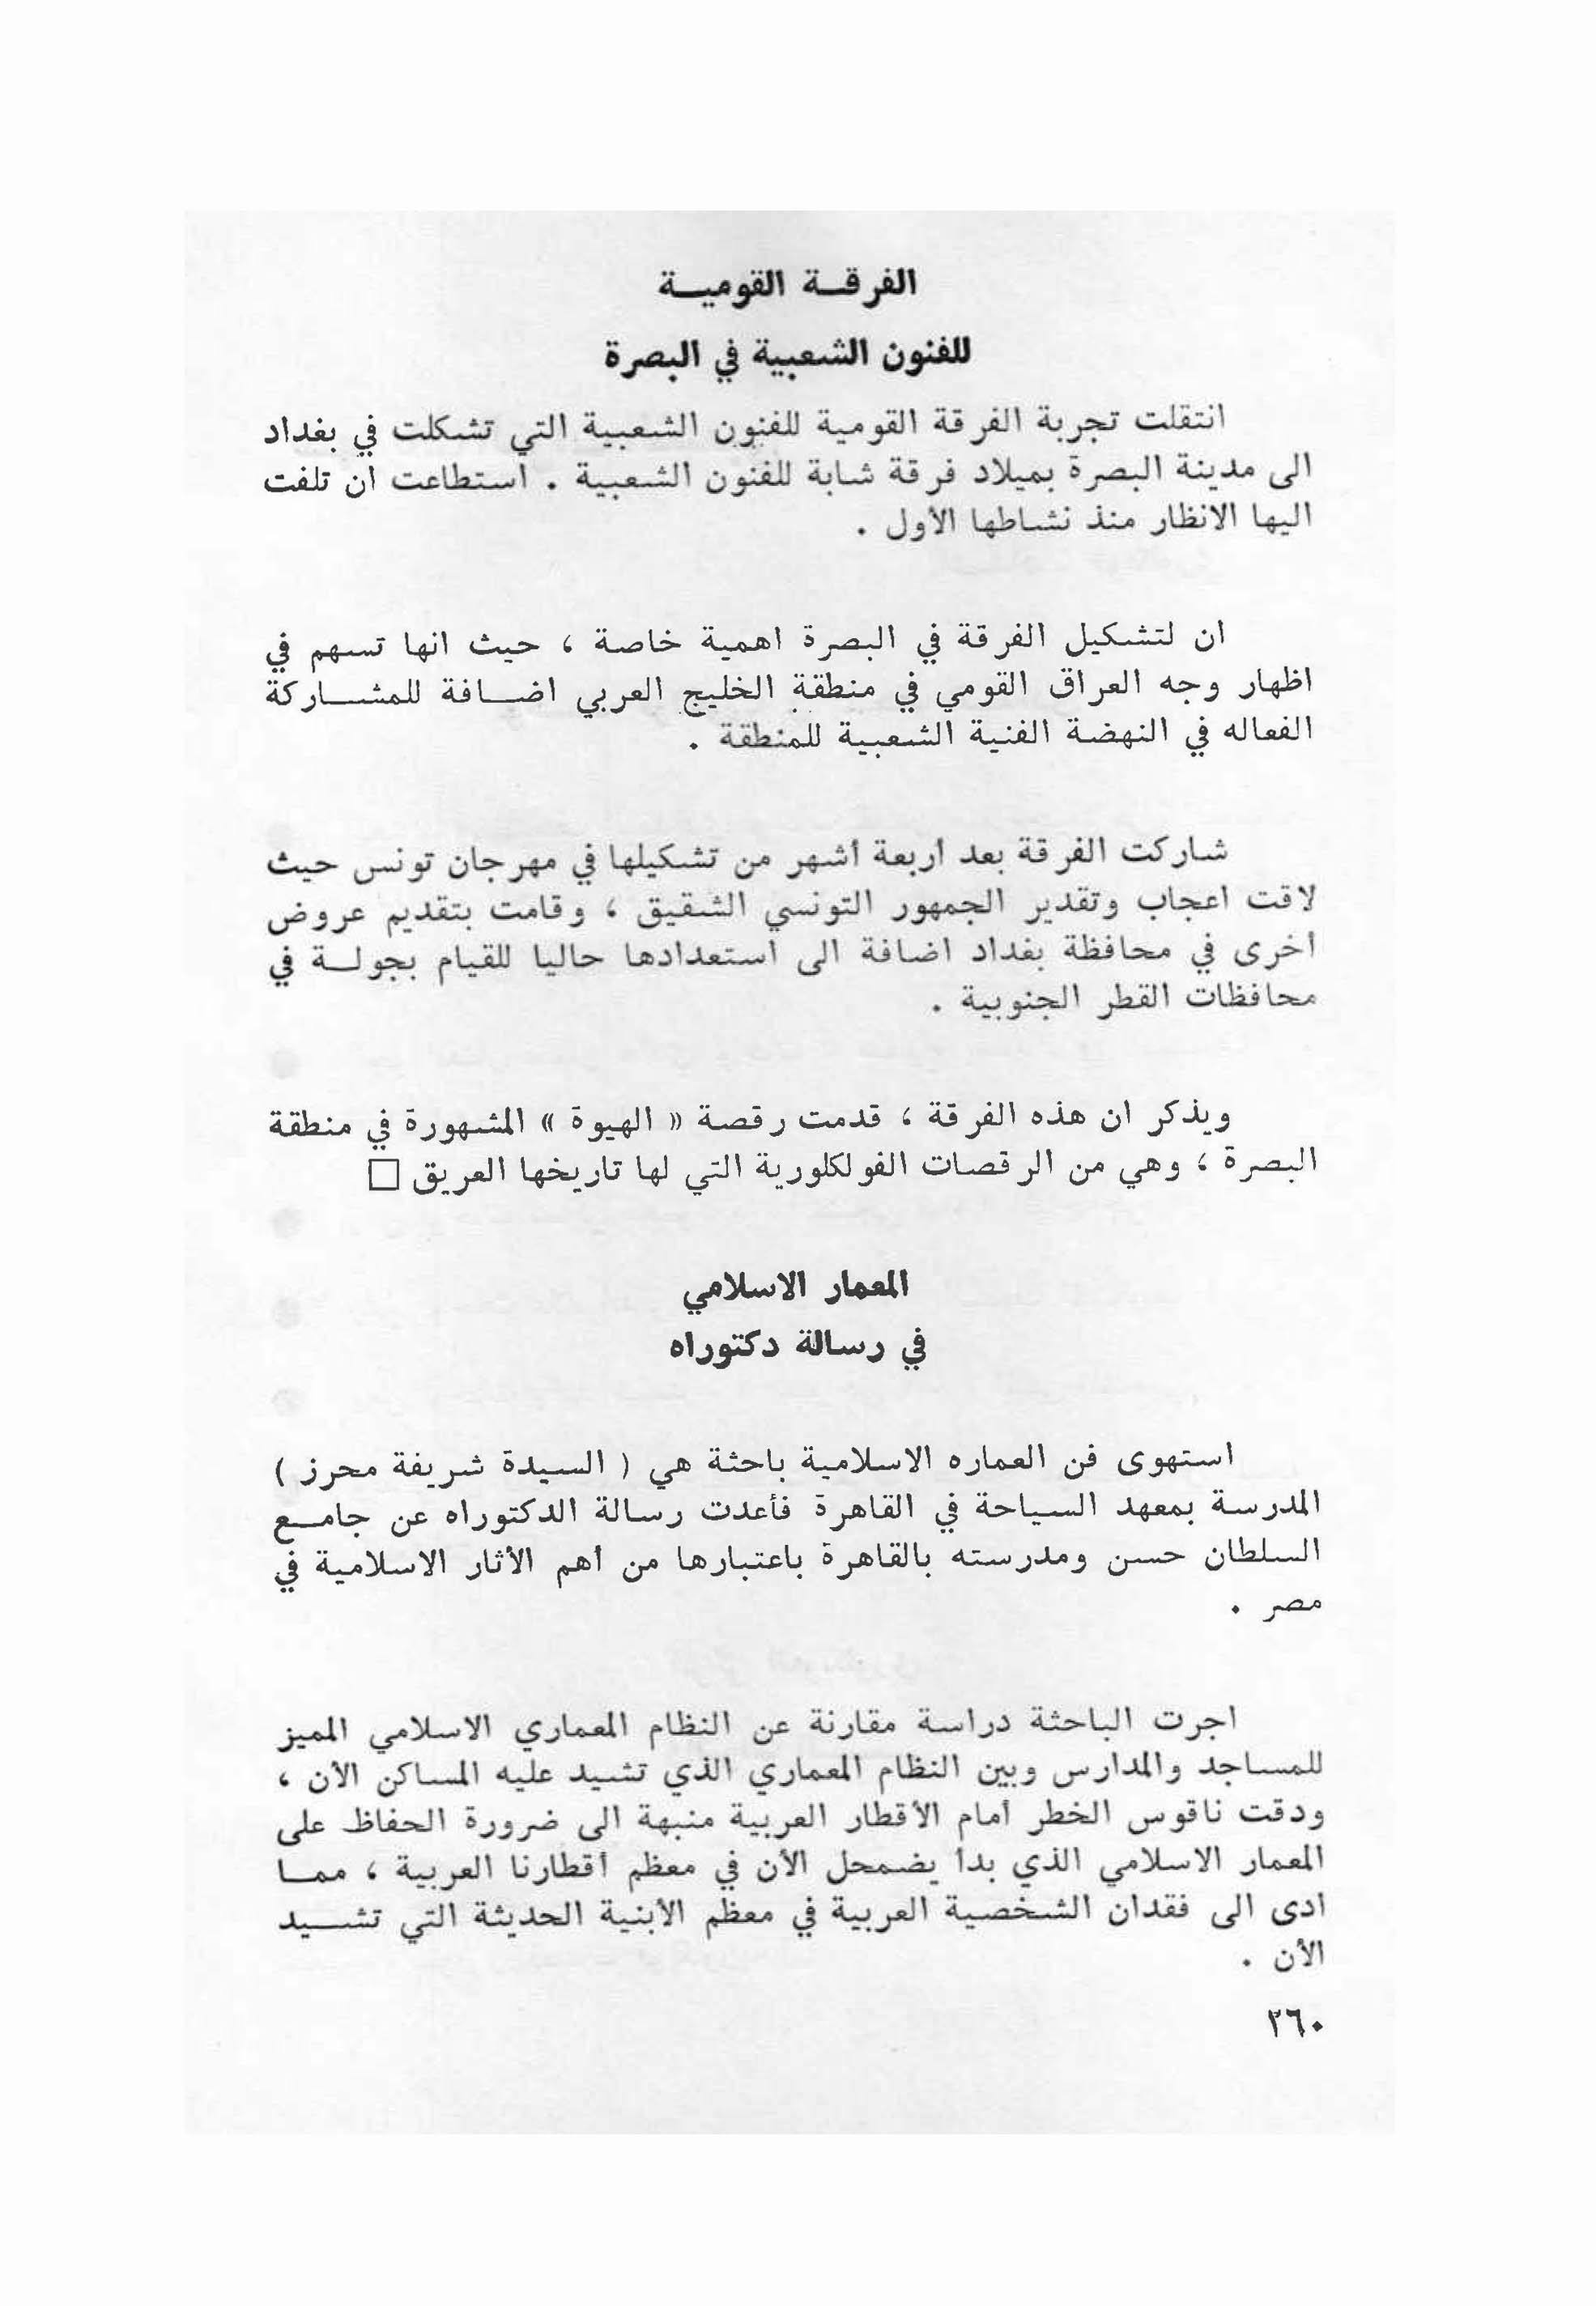 الفرقة القومية
للفنون الشعبية في البصرة
انتقلت تجربة الفرقة القومية للفنون الشعبية التي تشكلت في بغداد
الى مدينة البصرة بميلاد فرقة شابة للفنون الشعبية . استطاعت ان تلفت
اليها الانظار منذ نشاطها الأول .
ان لتشكيل الفرقة في البصرة اهمية خاصة ، حيث انها تسهم في
اظهار وجه العراق القومي في منطقة الخليج العربي اضافة للمشاركة
الفعاله في النهضة الفنية الشعبية للمنطقة .
شاركت الفرقة بعد أربعة أشهر من تشكيلها في مهرجان تونس حيث
لاقت اعجاب وتقدير الجمهور التونسي الشقيق ، وقامت بتقديم عروض
أخرى في محافظة بغداد اضافة الى استعدادها حاليا للقيام بجولة في
محافظات القطر الجنوبية .
ويذكر ان هذه الفرقة ، قدمت رقصة « الهيوة » المشهورة في منطقة
البصرة ، وهي من الرقصات الفولكلورية التي لها تاريخها العريق □
المعمار الاسلامي
في رسالة دكتوراه
استهوى فن العماره الاسلامية باحثة هي ( السيدة شريفة محرز )
المدرسة بمعهد السياحة في القاهرة فأعدت رسالة الدكتوراه عن جامع
السلطان حسن ومدرسته بالقاهرة باعتبارها من أهم الآثار الاسلامية في
مصر .
اجرت الباحثة دراسة مقارنة عن النظام المعماري الاسلامي المميز
للمساجد والمدارس وبين النظام المعماري الذي تشيد عليه المساكن الآن ،
ودقت ناقوس الخطر أمام الأقطار العربية منبهة الى ضرورة الحفاظ على
المعمار الاسلامي الذي بدأ يضمحل الآن في معظم أقطارنا العربية ، مما
ادى الى فقدان الشخصية العربية في معظم الأبنية الحديثة التي تشيد
الآن .
٢٦٠